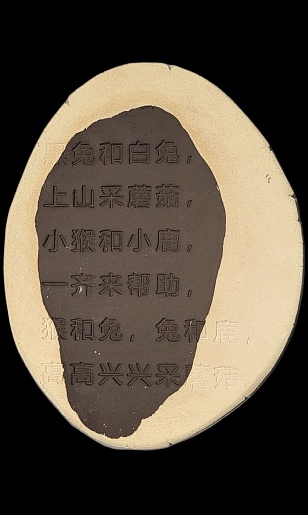 黑兔和白兔，
上山采蘑菇，
小猴和小鹿，
一齐来帮助，
猴和兔，兔和鹿，
高高兴兴采蘑菇。